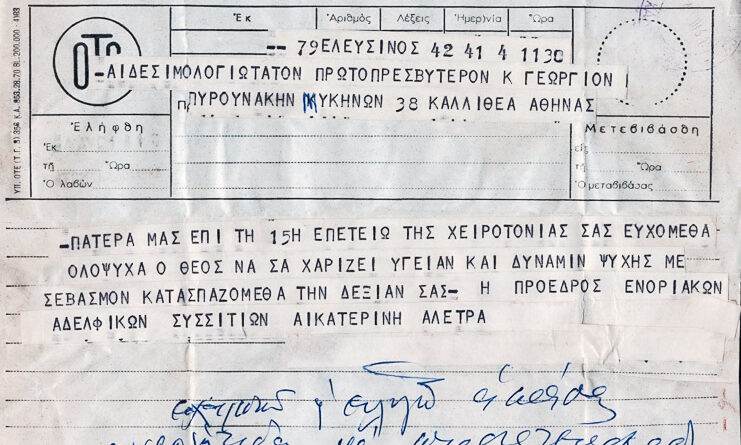 Ἐκ Ἀριθμός Λέξεις Ἡμερ)νία Ὥρα
-- 79 ΕΛΕΥΣΙΝΟΣ 42 41 4 1130
ΟΤΕ
-ΑΙΔΕΣΙΜΟΛΟΓΙΩΤΑΤΟΝ ΠΡΩΤΟΠΡΕΣΒΥΤΕΡΟΝ Κ ΓΕΩΡΓΙΟΝ
ΠΥΡΟΥΝΑΚΗΝ ΜΥΚΗΝΩΝ 38 ΚΑΛΛΙΘΕΑ ΑΘΗΝΑΣ
Ἐλήφθη
Ἐκ
τῇ Ὥρα
Ὁ λαβών
Μετεβιβάσθη
εἰς
τῇ Ὥρα
Ὁ μεταβιβάσας
-ΠΑΤΕΡΑ ΜΑΣ ΕΠΙ ΤΗ 15Η ΕΠΕΤΕΙΩ ΤΗΣ ΧΕΙΡΟΤΟΝΙΑΣ ΣΑΣ ΕΥΧΟΜΕΘΑ
ΟΛΟΨΥΧΑ Ο ΘΕΟΣ ΝΑ ΣΑ ΧΑΡΙΖΕΙ ΥΓΕΙΑΝ ΚΑΙ ΔΥΝΑΜΙΝ ΨΥΧΗΣ ΜΕ
ΣΕΒΑΣΜΟΝ ΚΑΤΑΣΠΑΖΟΜΕΘΑ ΤΗΝ ΔΕΞΙΑΝ ΣΑΣ- Η ΠΡΟΕΔΡΟΣ ΕΝΟΡΙΑΚΩΝ
ΑΔΕΛΦΙΚΩΝ ΣΥΣΣΙΤΙΩΝ ΑΙΚΑΤΕΡΙΝΗ ΑΛΕΤΡΑ